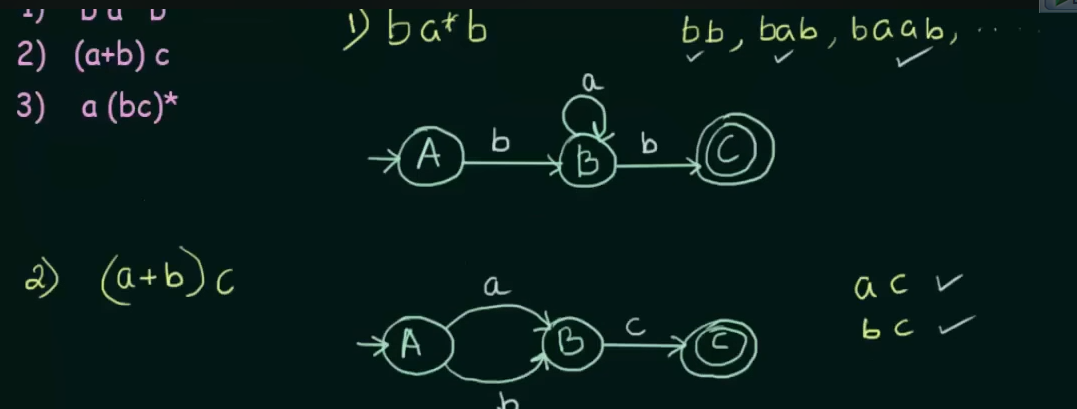 1) ba*b
2) (a+b) c
3) a (bc)*
1) ba*b
bb, bab, baab, .....
a
A b B b C
2) (a+b) c
a
A B c C
b
ac ✓
bc ✓